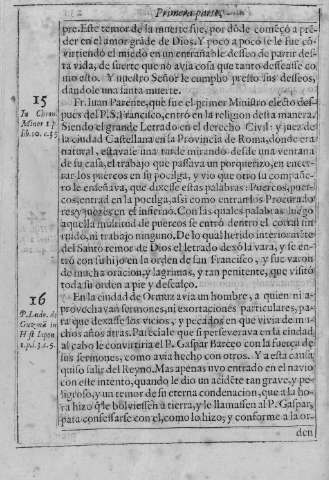 Primera parte,
pre. Este temor de la muerte fue, por dōde começó a prē-
der en el amor grāde de Dios. Y poco a poco se le fue cō-
uirtiendo el miedo en vn entrañable desseo de partir des-
ta vida, de suerte que no auia cosa que tanto desseasse co
mo esto. Y nuestro Señor le cumplio presto sus desseos,
dandole vna santa muerte.
15
In Chron.
Minor. 1. p.
lib. 10. c. 15
Fr. Iuan Parente, que fue el primer Ministro electo des-
pues del P. S. Francisco, entrò en la religion desta manera.
Siendo el grande Letrado en el derecho Ciuil: y juez de
la ciudad Castellana en la Prouincia de Roma, donde era
natural, estauase vna tarde mirando desde vna ventana
de su casa, el trabajo que passaua vn porquerizo, en encer-
rar los puercos en su pocilga, y vio que otro su compañe-
ro le enseñaua, que dixesse estas palabras: Puercos, puer-
cos, entrad en la pocilga, assi como entran los Procurado
res y juezes en el infierno. Con las quales palabras luego
aquella multitud de puercos se entrò dentro el corral sin
ruido, ni trabajo ninguno. De lo qual herido interiormēte
del Santo temor de Dios el letrado dexò la vara, y se en-
trò con su hijo en la orden de san Francisco, y fue varon
de mucha oracion, y lagrimas, y tan penitente, que visitò
toda su orden a pie y descalço.
16
P. Ludo. de
Guzmā in
Hist. Iapon.
1. p. l. 3. c. 5.
En la ciudad de Ormuz auia vn hombre, a quien ni a-
prouechauan sermones, ni exortaciones particulares, pa-
ra que dexasse los vicios, y peccados en que viuia de mu-
chos años atras. Pareciale que si perseueraua en la ciudad,
al cabo le conuertiria el P. Gaspar Barçeo con la fuerça de
sus sermones, como auia hecho con otros. Y a esta causa
quiso salir del Reyno. Mas apenas uvo entrado en el nauio
con este intento, quando le dio vn acidēte tan graue, y pe-
ligroso, y vn temor de su eterna condenacion, que a la ho-
ra hizo q̄ le boluiessen a tierra, y le llamassen al P. Gaspar,
para confessarse con el, como lo hizo; y conforme a la or-
den